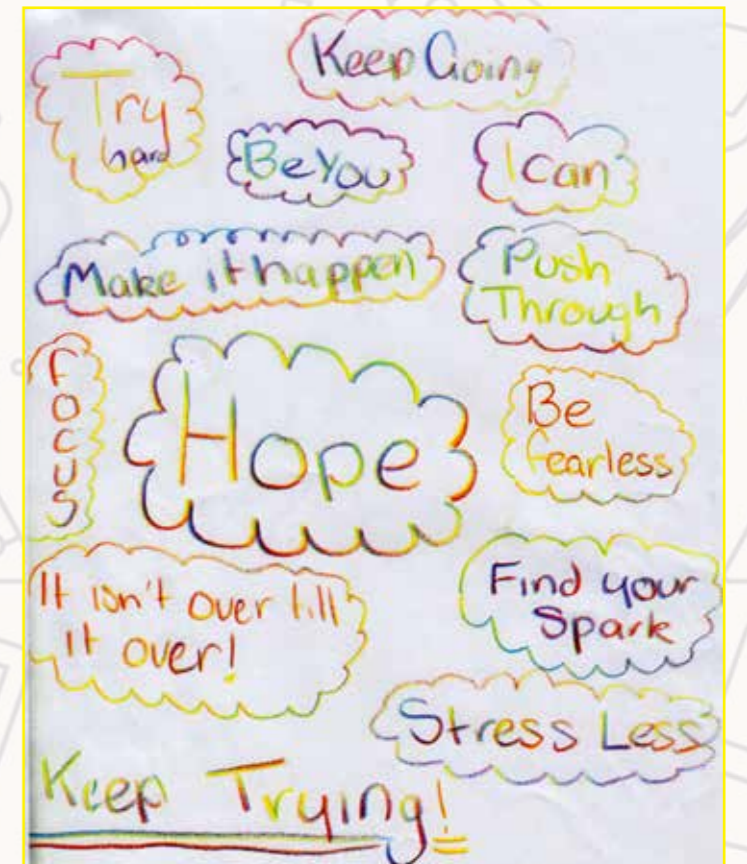 Keep Going
Try
hard
Be You
I can
Make it happen
Push
Through
Focus
Hope
Be
fearless
It isn't over till
it over!
Find your
Spark
Stress Less
Keep Trying!